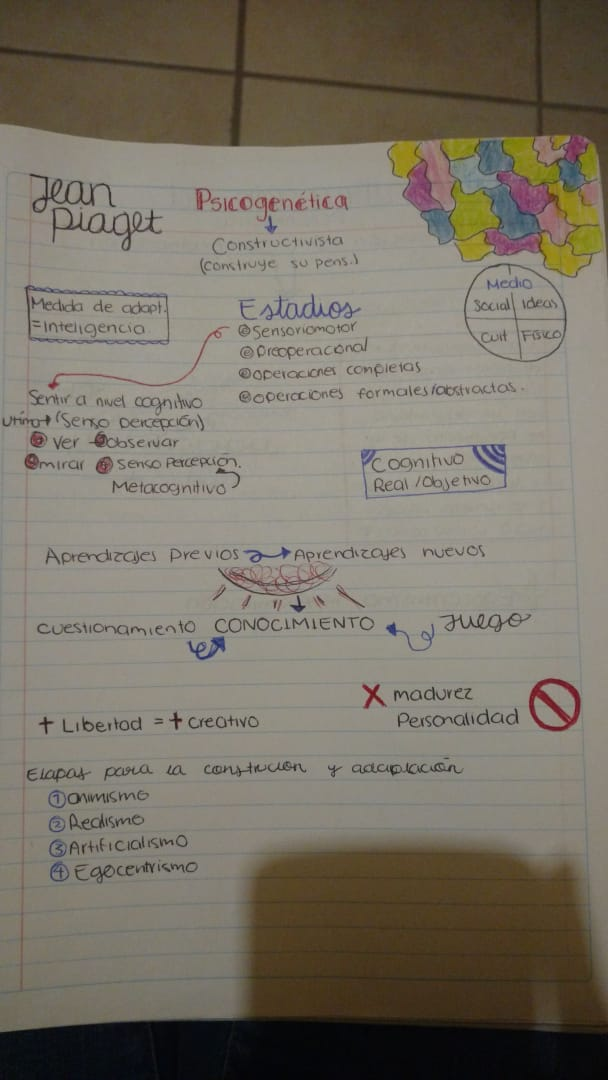 Jean
Piaget
Psicogenética
Constructivista
(construye su pens.)
Medida de adapt.
=Inteligencia
Estadios
Sensoriomotor
Preoperacional
operaciones completas
operaciones formales/abstractas.
Medio
Social Ideas
Cult Físico
Sentir a nivel cognitivo
(Senso percepción)
Ver Observar
mirar Senso Percepción.
Metacognitivo
Cognitivo
Real/Objetivo
Aprendizajes Previos → Aprendizajes nuevos
Cuestionamiento CONOCIMIENTO Juego
X madurez
Personalidad
+ Libertad = + Creativo
Etapas para la construcion y adaptación
1 animismo
2 Realismo
3 Artificialismo
4 Egocentrismo